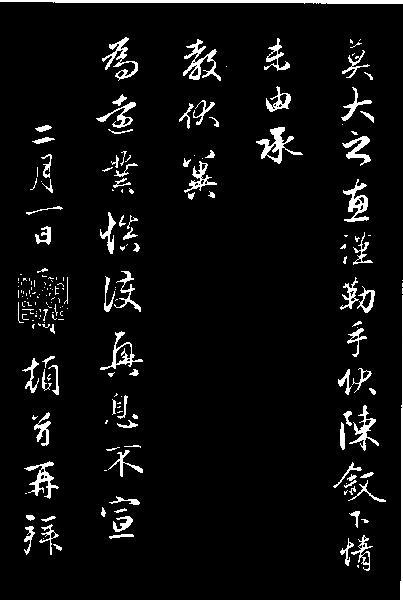 莫大之惠謹勒手状陳敘下情
未由承
教伏冀
為遠業慎護興息不宣
二月一日
頓首再拜